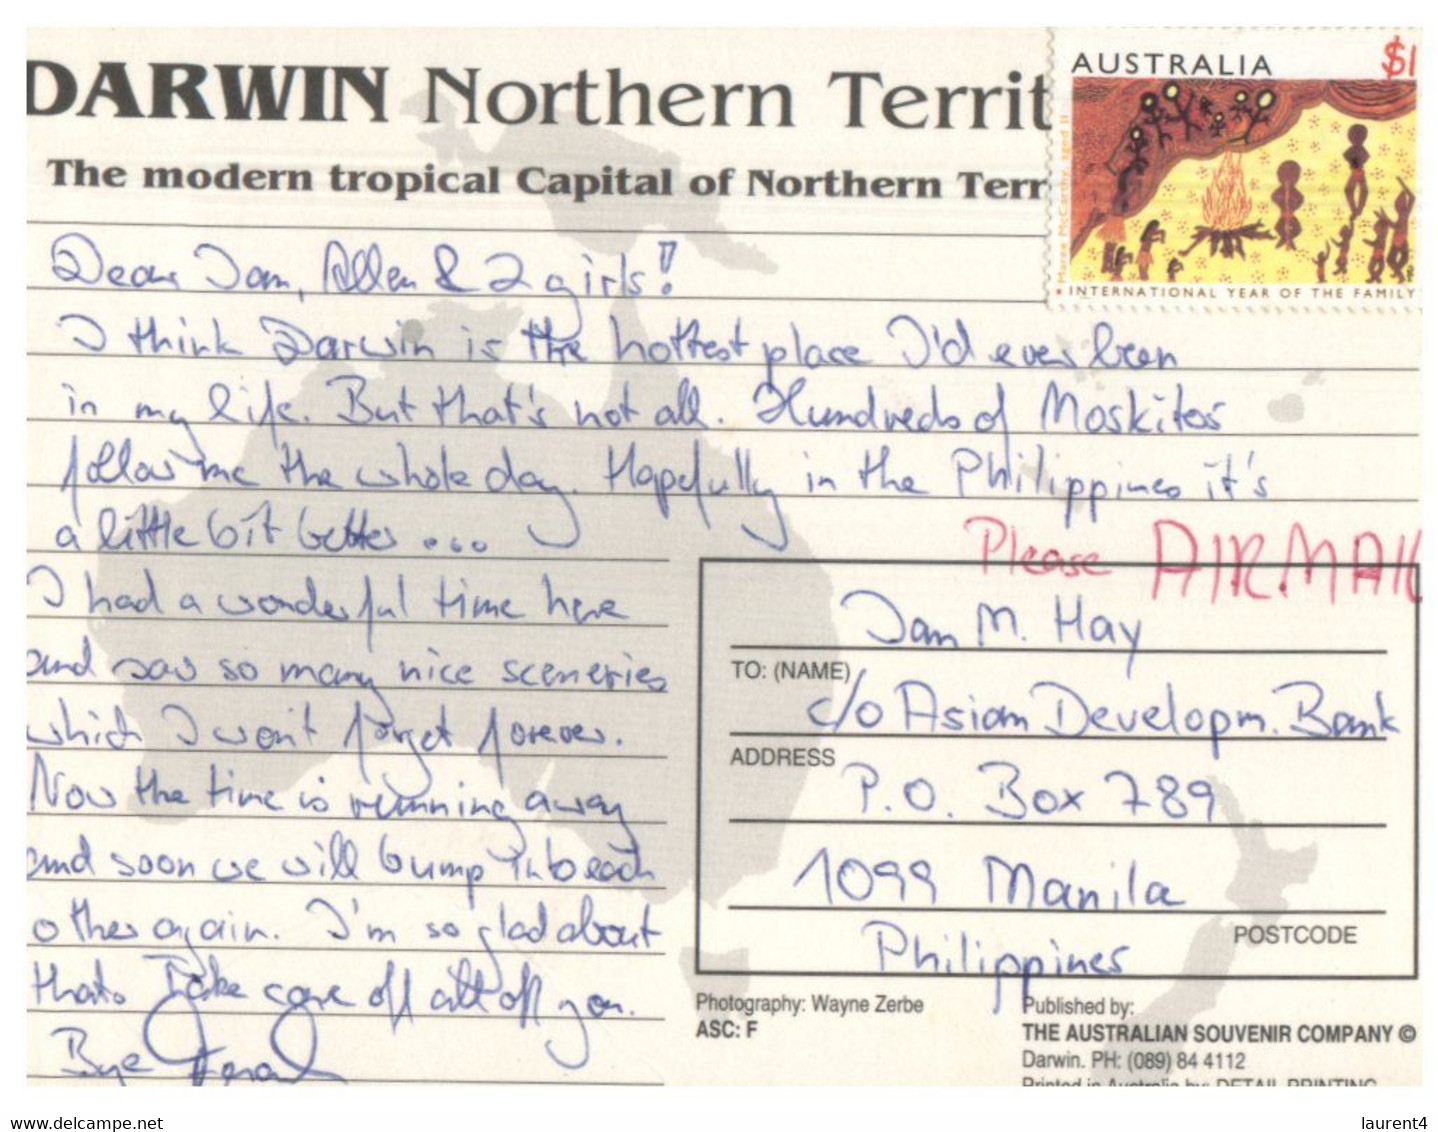 DARWIN Northern Territ
The modern tropical Capital of Northern Terr
AUSTRALIA $1
Maree McCarthy, aged 11
INTERNATIONAL YEAR OF THE FAMILY
Dear Jan, Allen & 2 girls!
I think Darwin is the hottest place I'd ever been
in my life. But that's not all. Hundreds of Moskitos
follow me the whole day. Hopefully in the Philippines it's
a little bit better ...
I had a wonderful time here
and saw so many nice sceneries
which I won't forget forever.
Now the time is running away
and soon we will bump into each
other again. I'm so glad about
that. Take care off all off you.
Bye
Please AIRMAIL
Jan M. Hay
TO: (NAME)
c/o Asian Developm. Bank
ADDRESS
P.O. Box 789
1099 Manila
POSTCODE
Philippines
Photography: Wayne Zerbe
ASC: F
Published by:
THE AUSTRALIAN SOUVENIR COMPANY ©
Darwin. PH: (089) 84 4112
Printed in Australia by: DETAIL PRINTING
www.delcampe.net
laurent4